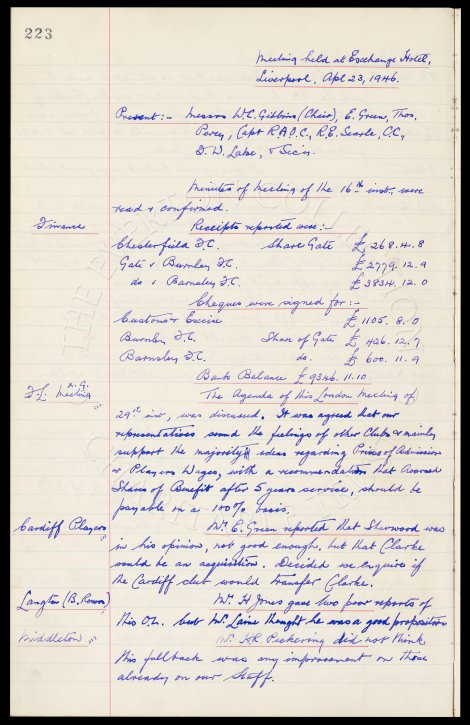 223
Meeting held at Exchange Hotel,
Liverpool. Apl 23, 1946.
Present:- Messrs W.C. Gibbins (Chair), E. Green, Thos.
Percy, Capt R.A.O.C., R.E. Searle, C.C.,
D. W. Laine, & Sec'y.
Minutes of meeting of the 16th inst, were
read & confirmed.
Finance Receipts reported were:-
Chesterfield F.C. Share Gate £268.4.8
Gate v Burnley F.C. £2779.12.9
do v Barnsley F.C. £3834.12.0
Cheques were signed for:-
Customs & Excise £1105.8.0
Burnley F.C. Share of Gate £426.12.7
Barnsley F.C. do. £600.11.9
Bank Balance £9346.11.10
F.L. Meeting The Agenda of this London Meeting of
29th inst, was discussed. It was agreed that our
representatives sound the feelings of other Clubs & mainly
support the majority ideas regarding Prices of Admission
& Players Wages, with a recommendation that Accrued
Share of Benefit after 5 years service, should be
payable on a 100% basis.
Cardiff Players Mr E. Green reported that Sherwood was
in his opinion, not good enough, but that Clarke
would be an acquisition. Decided we enquire if
the Cardiff club would transfer Clarke.
Langton (B. Rovers) Mr. H Jones gave two poor reports of
this O.L. but Mr Laine thought he was a good proposition
Middleton Mr. H.R. Pickering did not think
this fullback was any improvement on those
already on our Staff.